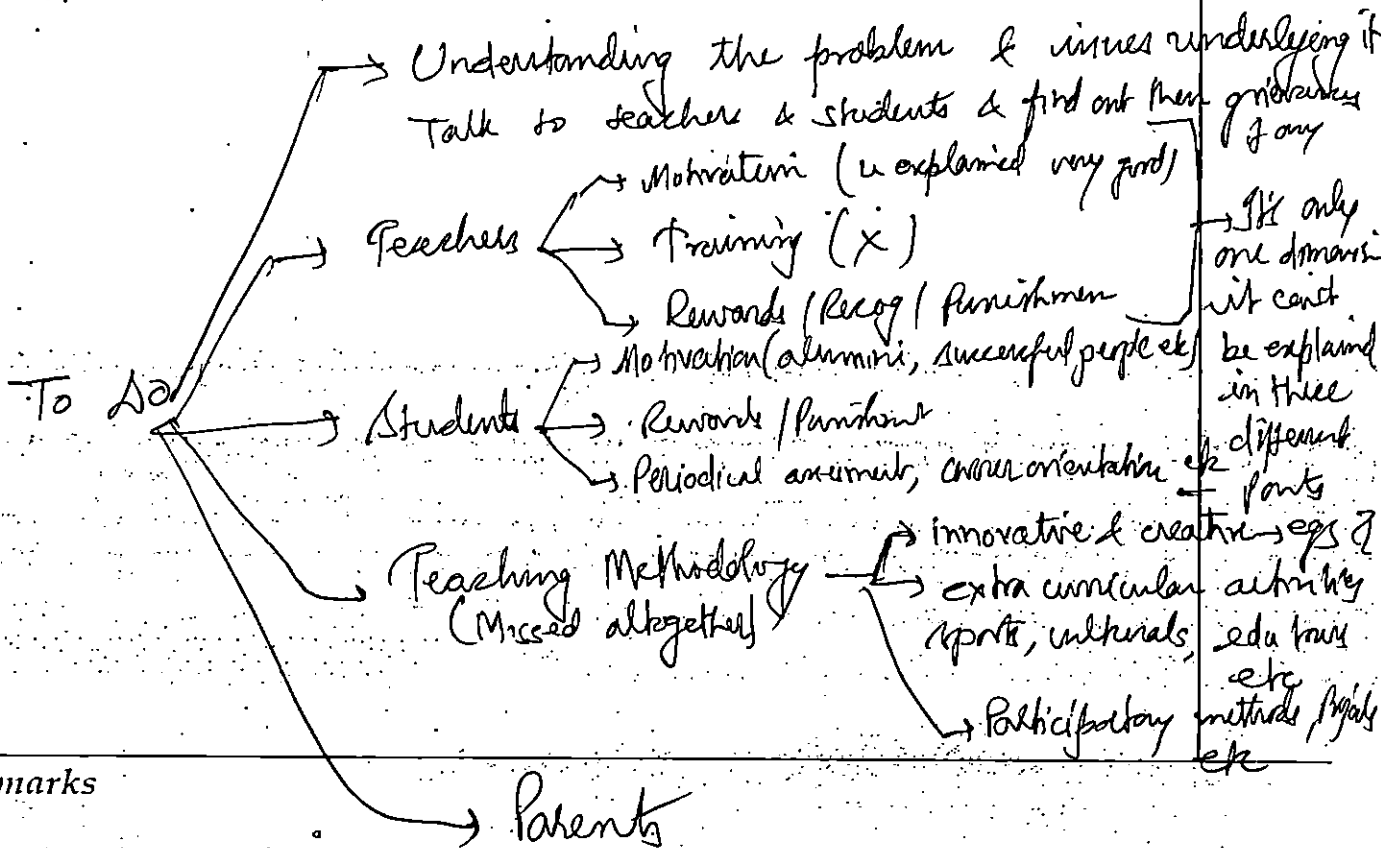 Understanding the problem & issues underlying it
Talk to teachers & students & find out their grievances
if any
Teachers
Motivation (u explained very good)
Training (x)
Rewards / Recog / Punishmen
→ It's only
one dimension
it can't
be explained
in three
different
points
To Do
Students
Motivation (alumini, successful people etc)
Rewards / Punishment
Periodical assesment, career orientation etc
Teaching Methodology
(Missed altogether)
innovative & creative → egs
extra curricular activities
sports, culturals, edu tours
etc
Participatory methods,
etc
marks
Parents